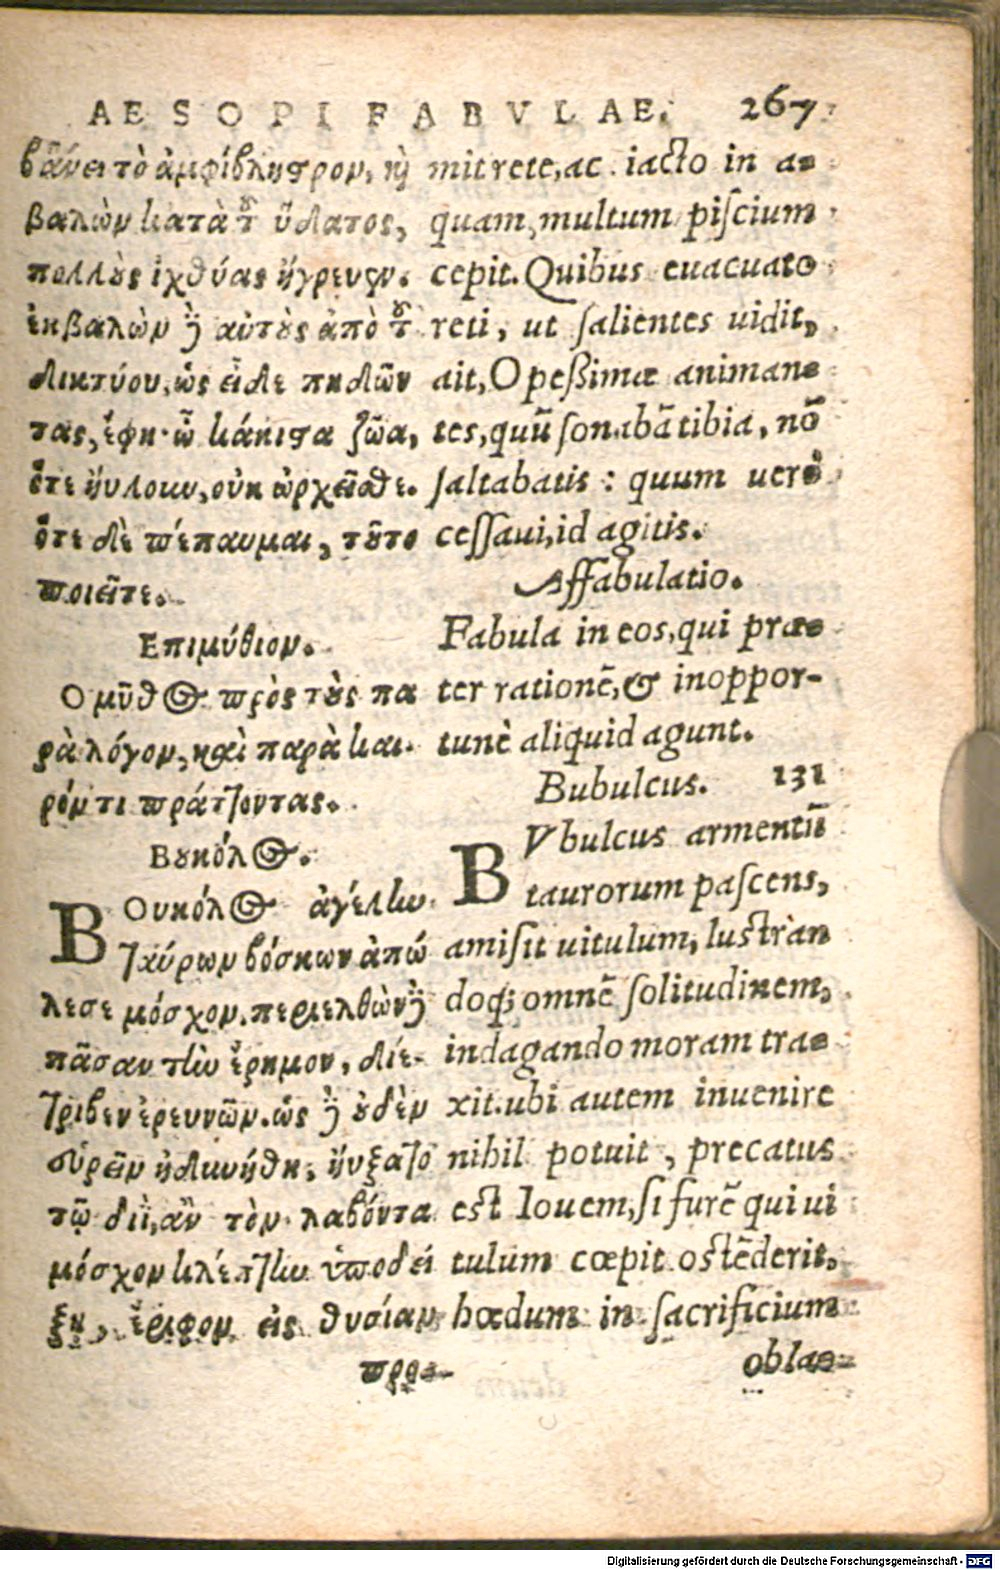 AESOPI FABVLAE. 267
βάνει τὸ ἀμφίβληστρον, καὶ
βαλὼν κατὰ τοῦ ὕδατος,
πολλοὺς ἰχθύας ἤγρευσεν.
ἐκβαλὼν δὲ αὐτοὺς ἀπὸ τοῦ
δικτύου, ὡς εἶδε πηδῶν
τας, ἔφη· ὦ κάκιστα ζῶα,
ὅτε ηὔλουν, οὐκ ὠρχεῖσθε.
ὅτε δὲ πέπαυμαι, τοῦτο
ποιεῖτε.
Επιμύθιον.
Ο μῦθος πρὸς τοὺς πα
ρὰ λόγον, καὶ παρὰ και-
ρόν τι πράττοντας.
Βουκόλος.
ΒΟυκόλος ἀγέλην
ταύρων βόσκων ἀπώ
λεσε μόσχον. περιελθὼν δὲ
πᾶσαν τὴν ἔρημον, διέ-
τριβεν ἐρευνῶν. ὡς δὲ οὐδὲν
εὑρεῖν ἠδυνήθη, ηὔξατο
τῷ διῒ, ἂν τὸν λαβόντα
μόσχον κλέπτην ὑποδεί
ξῃ, ἔριφον εἰς θυσίαν
προσ-
mit rete, ac iacto in a-
quam, multum piſcium
cepit. Quibus euacuato
reti, ut ſalientes uidit,
ait, O peßimæ animan-
tes, quũ ſonabã tibia, nõ
ſaltabatis: quum uerò
ceſſaui, id agitis.
Affabulatio.
Fabula in eos, qui præ-
ter rationẽ, & inoppor-
tunè aliquid agunt.
Bubulcus. 131
BVbulcus armentũ
taurorum paſcens,
amiſit uitulum, luſtràn
doq; omnẽ ſolitudinem,
indagando moram tra-
xit. ubi autem inuenire
nihil potuit, precatus
est Iouem, ſi furẽ qui ui
tulum cœpit oſtẽderit,
hœdum in ſacrificium
obla-
Digitalisierung gefördert durch die Deutsche Forschungsgemeinschaft - DFG